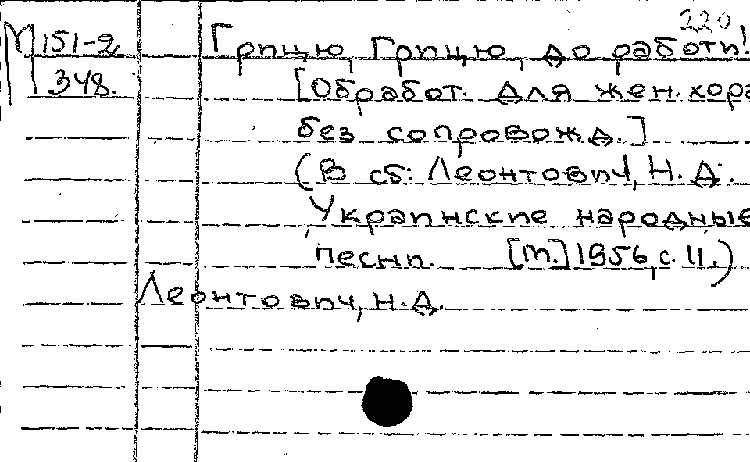 220
М 151-2 Грицю, Грицю, до работи!
348. [Обработ. для жен. хора
без сопровожд.]
(В сб: Леонтович, Н. Д.
Украинские народные
песни. [М.] 1956, с. 11.)
Леонтович, Н. Д.